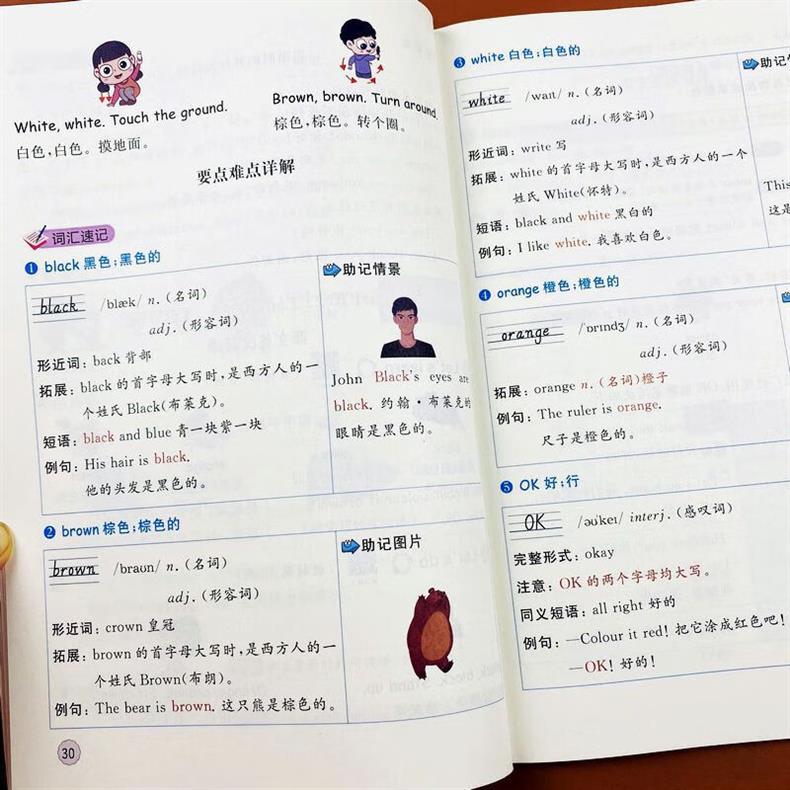 White, white. Touch the ground.
白色,白色。摸地面。
Brown, brown. Turn around.
棕色,棕色。转个圈。
要点难点详解
词汇速记
1 black 黑色;黑色的
black /blæk/ n.(名词)
adj.(形容词)
形近词:back 背部
拓展:black 的首字母大写时,是西方人的一
个姓氏 Black(布莱克)。
短语:black and blue 青一块紫一块
例句:His hair is black.
他的头发是黑色的。
助记情景
John Black's eyes are
black. 约翰·布莱克的
眼睛是黑色的。
2 brown 棕色;棕色的
brown /braʊn/ n.(名词)
adj.(形容词)
形近词:crown 皇冠
拓展:brown 的首字母大写时,是西方人的一
个姓氏 Brown(布朗)。
例句:The bear is brown. 这只熊是棕色的。
助记图片
30
3 white 白色;白色的
white /waɪt/ n.(名词)
adj.(形容词)
形近词:write 写
拓展:white 的首字母大写时,是西方人的一个
姓氏 White(怀特)。
短语:black and white 黑白的
例句:I like white. 我喜欢白色。
助记情
This
这是
4 orange 橙色;橙色的
orange /ˈɒrɪndʒ/ n.(名词)
adj.(形容词)
拓展:orange n.(名词)橙子
例句:The ruler is orange.
尺子是橙色的。
5 OK 好;行
OK /əʊˈkeɪ/ interj.(感叹词)
完整形式:okay
注意:OK 的两个字母均大写。
同义短语:all right 好的
例句:—Colour it red! 把它涂成红色吧!
—OK! 好的!